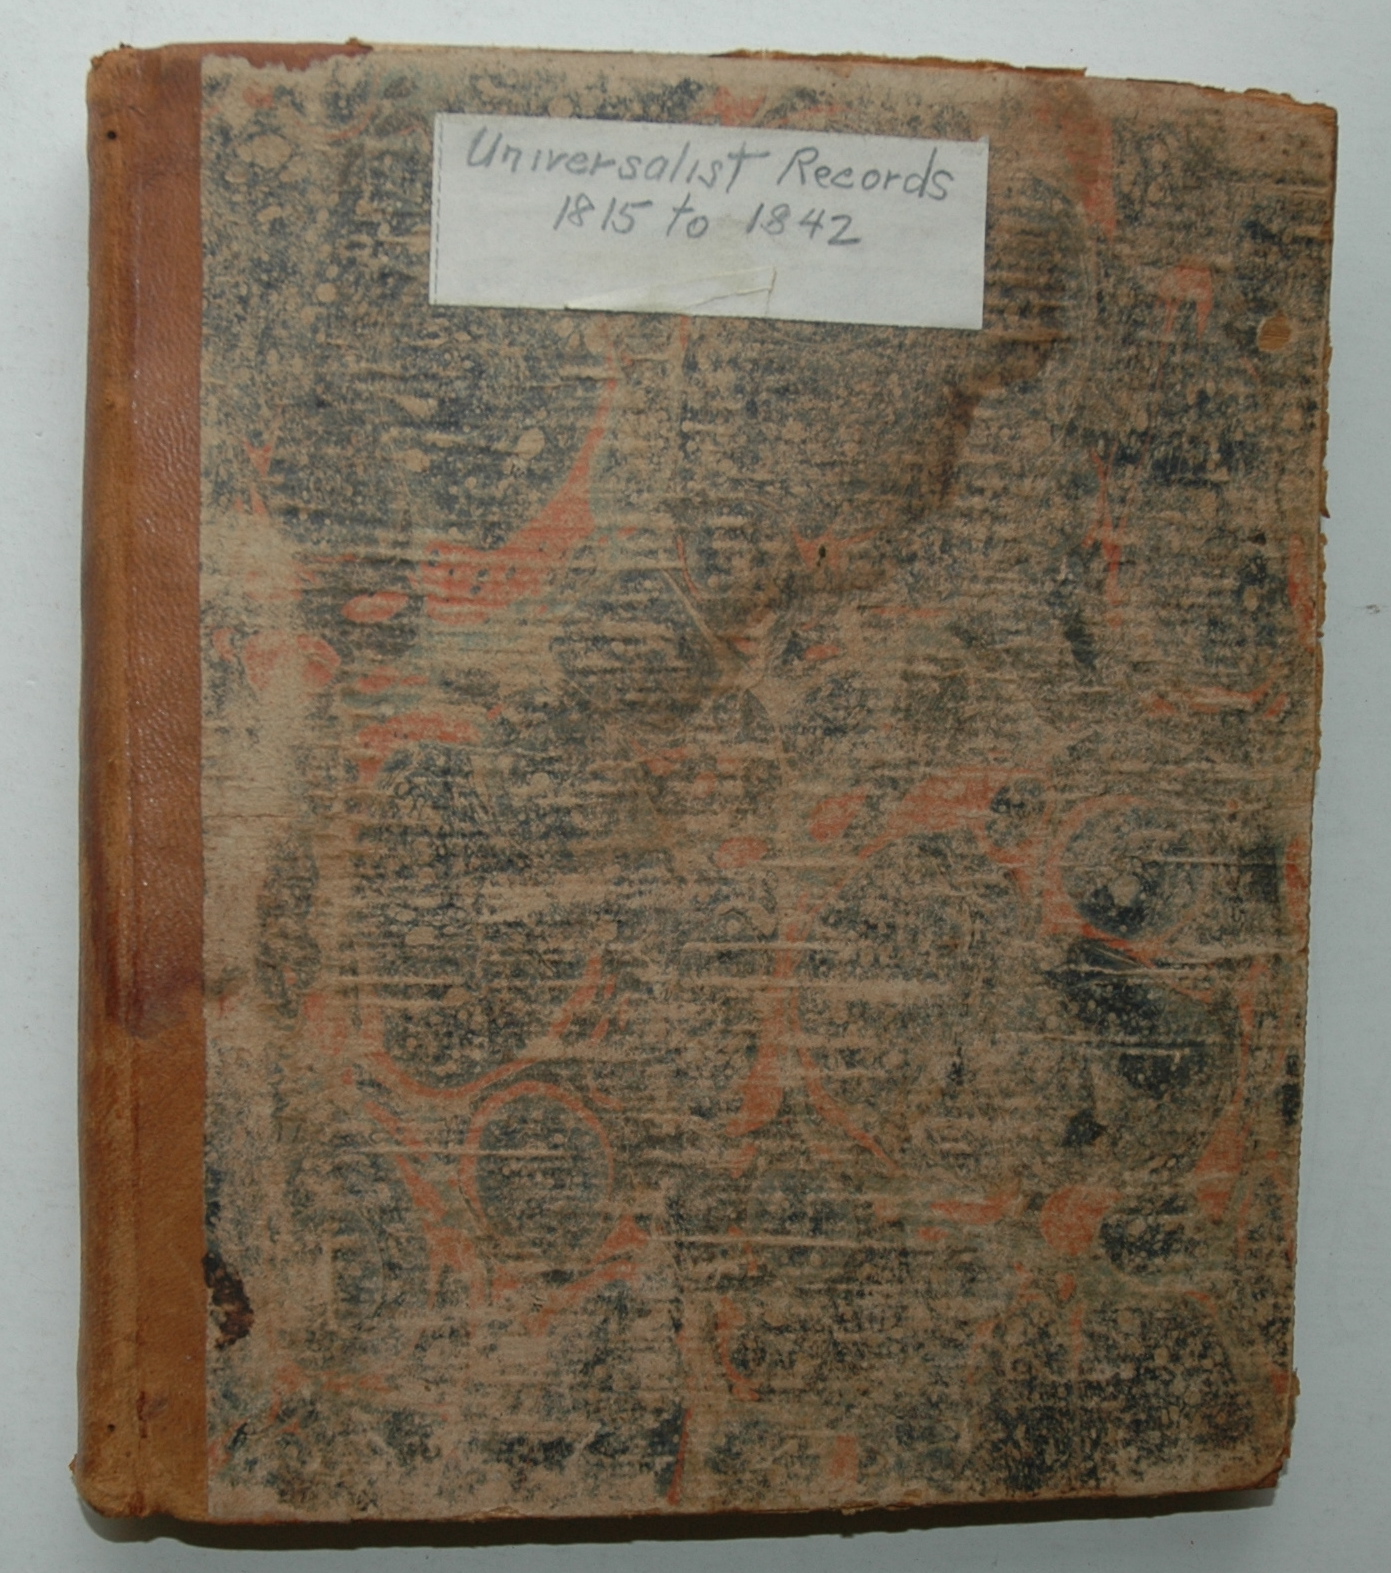 Universalist Records
1815 to 1842